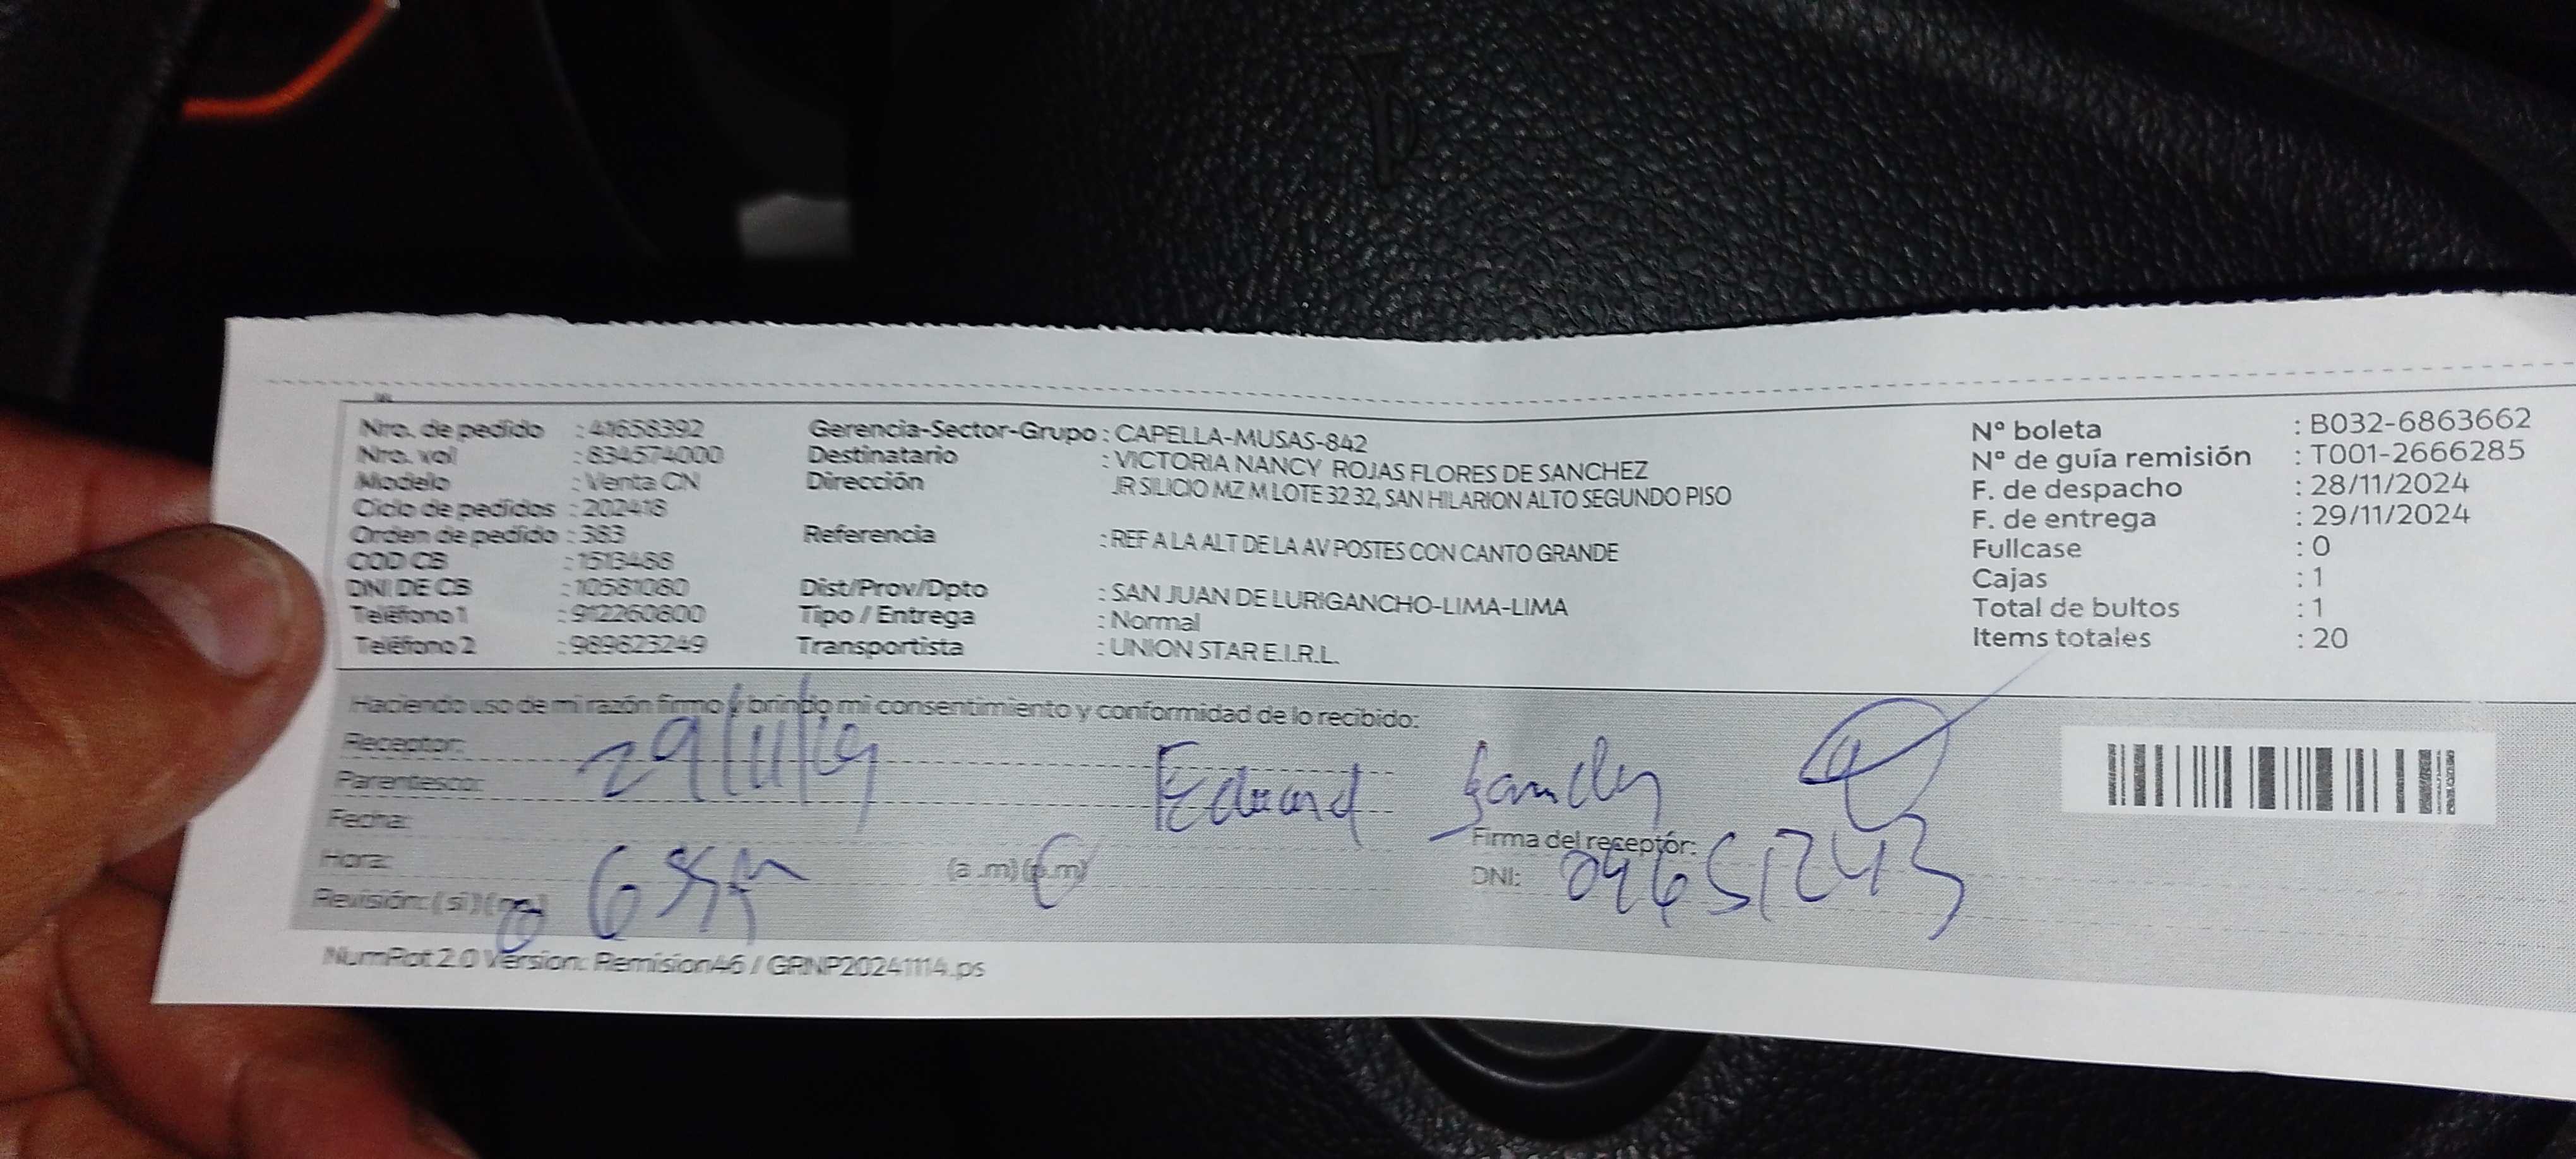 Nro. de pedido : 41658392
Nro. vol : 834574000
Modelo : Venta CN
Ciclo de pedidos : 202418
Orden de pedido : 383
COD CB : 1513488
DNI DE CB : 10581080
Teléfono 1 : 912260800
Teléfono 2 : 989823249
Gerencia-Sector-Grupo : CAPELLA-MUSAS-842
Destinatario : VICTORIA NANCY ROJAS FLORES DE SANCHEZ
Dirección : JR SILICIO MZ M LOTE 32 32, SAN HILARION ALTO SEGUNDO PISO
Referencia : REF A LA ALT DE LA AV POSTES CON CANTO GRANDE
Dist/Prov/Dpto : SAN JUAN DE LURIGANCHO-LIMA-LIMA
Tipo / Entrega : Normal
Transportista : UNION STAR E.I.R.L.
N° boleta : B032-6863662
N° de guía remisión : T001-2666285
F. de despacho : 28/11/2024
F. de entrega : 29/11/2024
Fullcase : 0
Cajas : 1
Total de bultos : 1
Items totales : 20
Haciendo uso de mi razón firmo y brindo mi consentimiento y conformidad de lo recibido:
Receptor:
Parentesco:
Fecha:
Hora: (a.m) (p.m)
Revisión: ( si ) ( no )
Eduard
Firma del receptór:
DNI: 09651243
NumRot 2.0 Version: Remision46 / GRNP20241114.ps